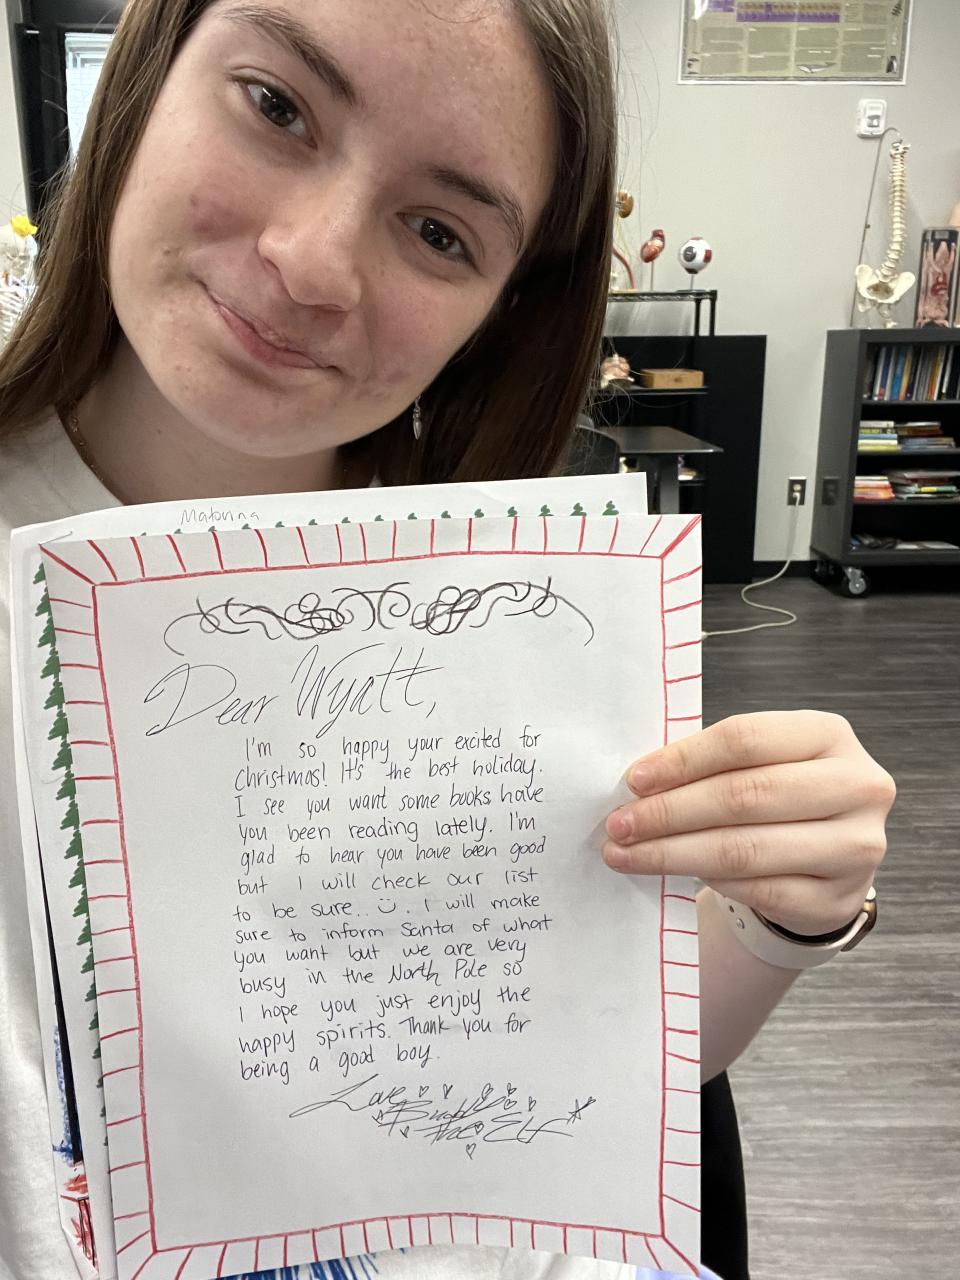 Matorina
Dear Wyatt,
I'm so happy your excited for
Christmas! It's the best holiday.
I see you want some books have
you been reading lately. I'm
glad to hear you have been good
but I will check our list
to be sure.. ☺. I will make
sure to inform Santa of what
you want but we are very
busy in the North Pole so
I hope you just enjoy the
happy spirits. Thank you for
being a good boy.
Love,
Buddy
the Elf